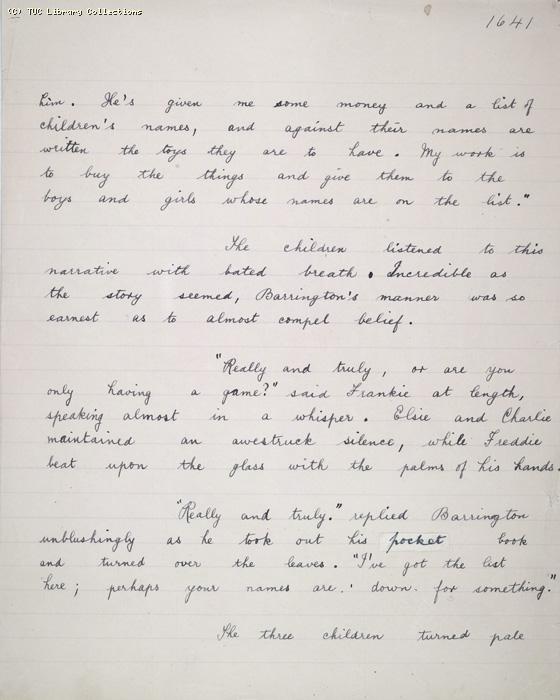 (C) TUC Library Collections
1641
him. He's given me some money and a list of
children's names, and against their names are
written the toys they are to have. My work is
to buy the things and give them to the
boys and girls whose names are on the list."
The children listened to this
narrative with bated breath. Incredible as
the story seemed, Barrington's manner was so
earnest as to almost compel belief.
"Really and truly, or are you
only having a game?" said Frankie at length,
speaking almost in a whisper. Elsie and Charlie
maintained an awestruck silence, while Freddie
beat upon the glass with the palms of his hands.
"Really and truly." replied Barrington
unblushingly as he took out his pocket book
and turned over the leaves. "I've got the list
here; perhaps your names are down for something."
The three children turned pale